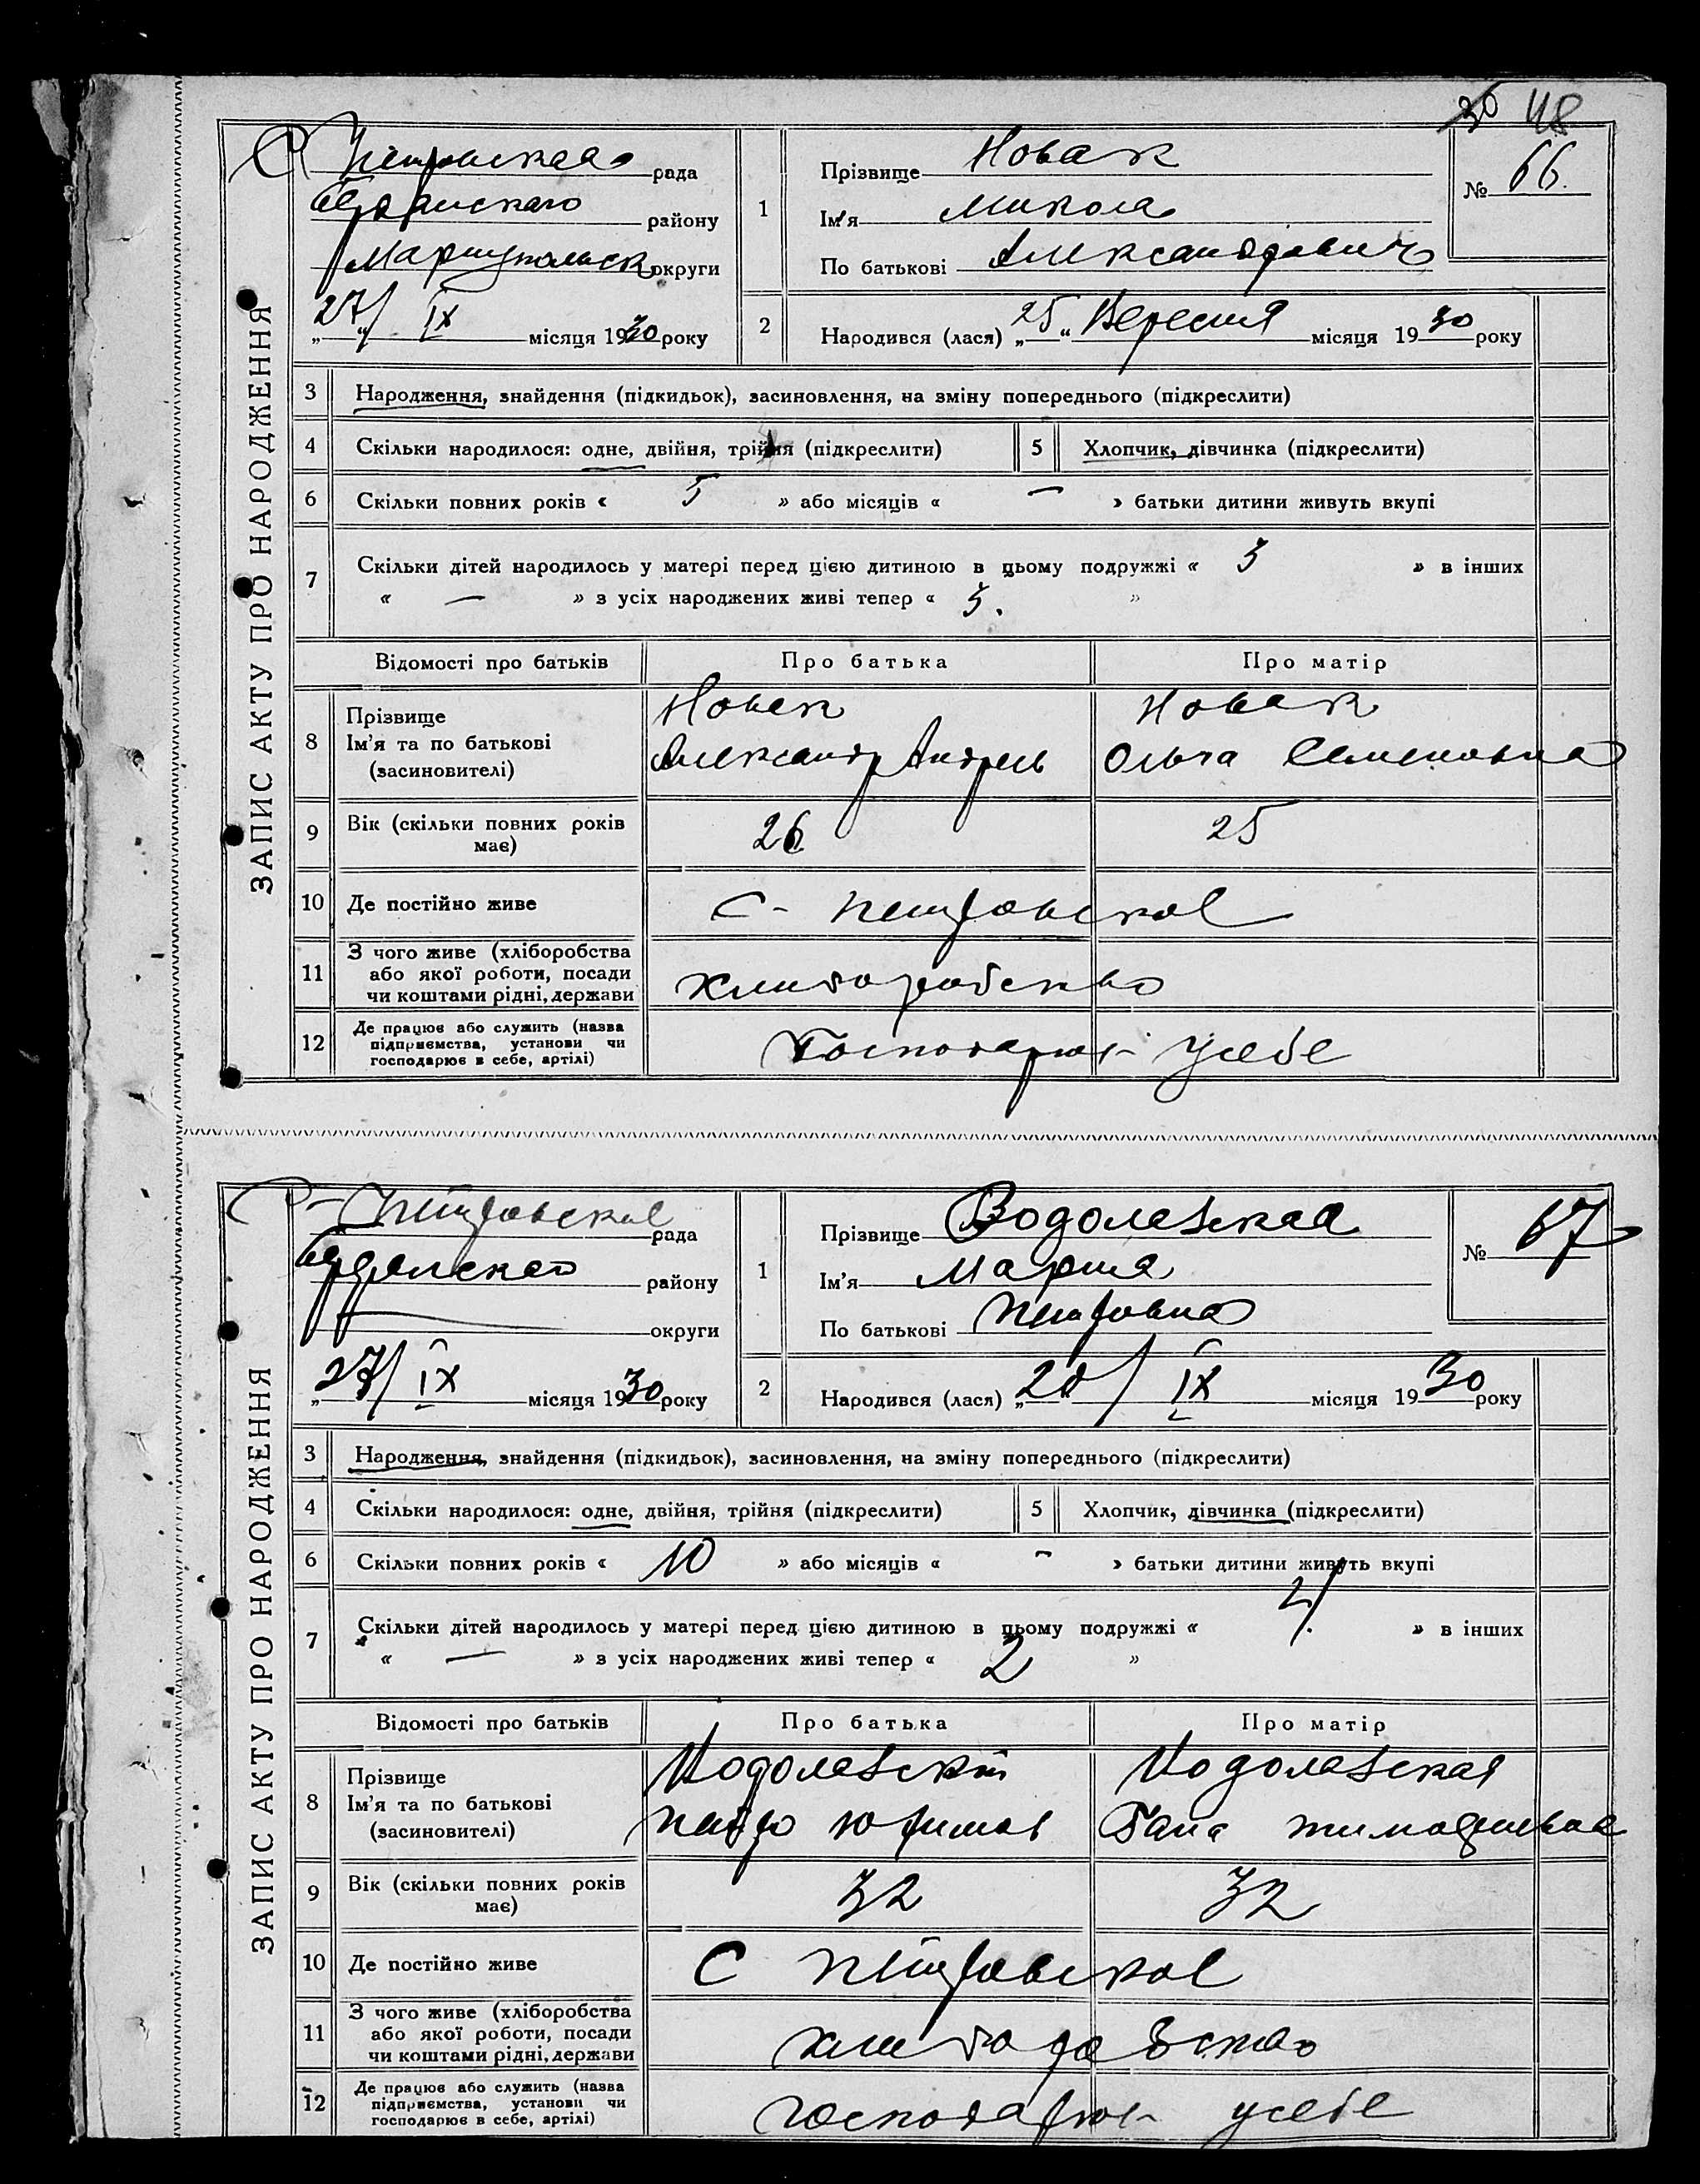 30 48
ЗАПИС АКТУ ПРО НАРОДЖЕННЯ
С Петровская рада
Бердянского району
Мариупольск округи
„27/ IX місяця 1930 року
1
Прізвище Новак
Ім'я Микола
По батькові Александрович
№ 66.
2
Народився (лася) „25" Вересня місяця 1930 року
3 Народження, знайдення (підкидьок), засиновлення, на зміну попереднього (підкреслити)
4 Скільки народилося: одне, двійня, трійня (підкреслити) 5 Хлопчик, дівчинка (підкреслити)
6 Скільки повних років « 5 » або місяців « – » батьки дитини живуть вкупі
7 Скільки дітей народилось у матері перед цією дитиною в цьому подружжі « 3 » в інших
« — » з усіх народжених живі тепер « 3. »
Відомості про батьків Про батька Про матір
8 Прізвище
Ім'я та по батькові
(засиновителі)
Новак
Александр Андреев
Новак
Ольга Семеновна
9 Вік (скільки повних років
має)
26 25
10 Де постійно живе С- Петровское
11 З чого живе (хліборобства
або якої роботи, посади
чи коштами рідні, держави
Хлиборобство
12 Де працює або служить (назва
підприємства, установи чи
господарює в себе, артілі)
Господарюк усебе
ЗАПИС АКТУ ПРО НАРОДЖЕННЯ
С- Петровское рада
Бердянского району
— округи
„27/ IX місяця 1930 року
1
Прізвище Водолазская
Ім'я Мария
По батькові Петровна
№ 67
2
Народився (лася) „20/ IX місяця 1930 року
3 Народження, знайдення (підкидьок), засиновлення, на зміну попереднього (підкреслити)
4 Скільки народилося: одне, двійня, трійня (підкреслити) 5 Хлопчик, дівчинка (підкреслити)
6 Скільки повних років « 10 » або місяців « – » батьки дитини живуть вкупі
7 Скільки дітей народилось у матері перед цією дитиною в цьому подружжі « » в інших
« — » з усіх народжених живі тепер « 2 »
Відомості про батьків Про батька Про матір
8 Прізвище
Ім'я та по батькові
(засиновителі)
Водолазский
Петро Юфимов
Водолазская
Гана Тимофеевна
9 Вік (скільки повних років
має)
32 32
10 Де постійно живе С Петровское
11 З чого живе (хліборобства
або якої роботи, посади
чи коштами рідні, держави
хлиборобство
12 Де працює або служить (назва
підприємства, установи чи
господарює в себе, артілі)
господарюк усебе